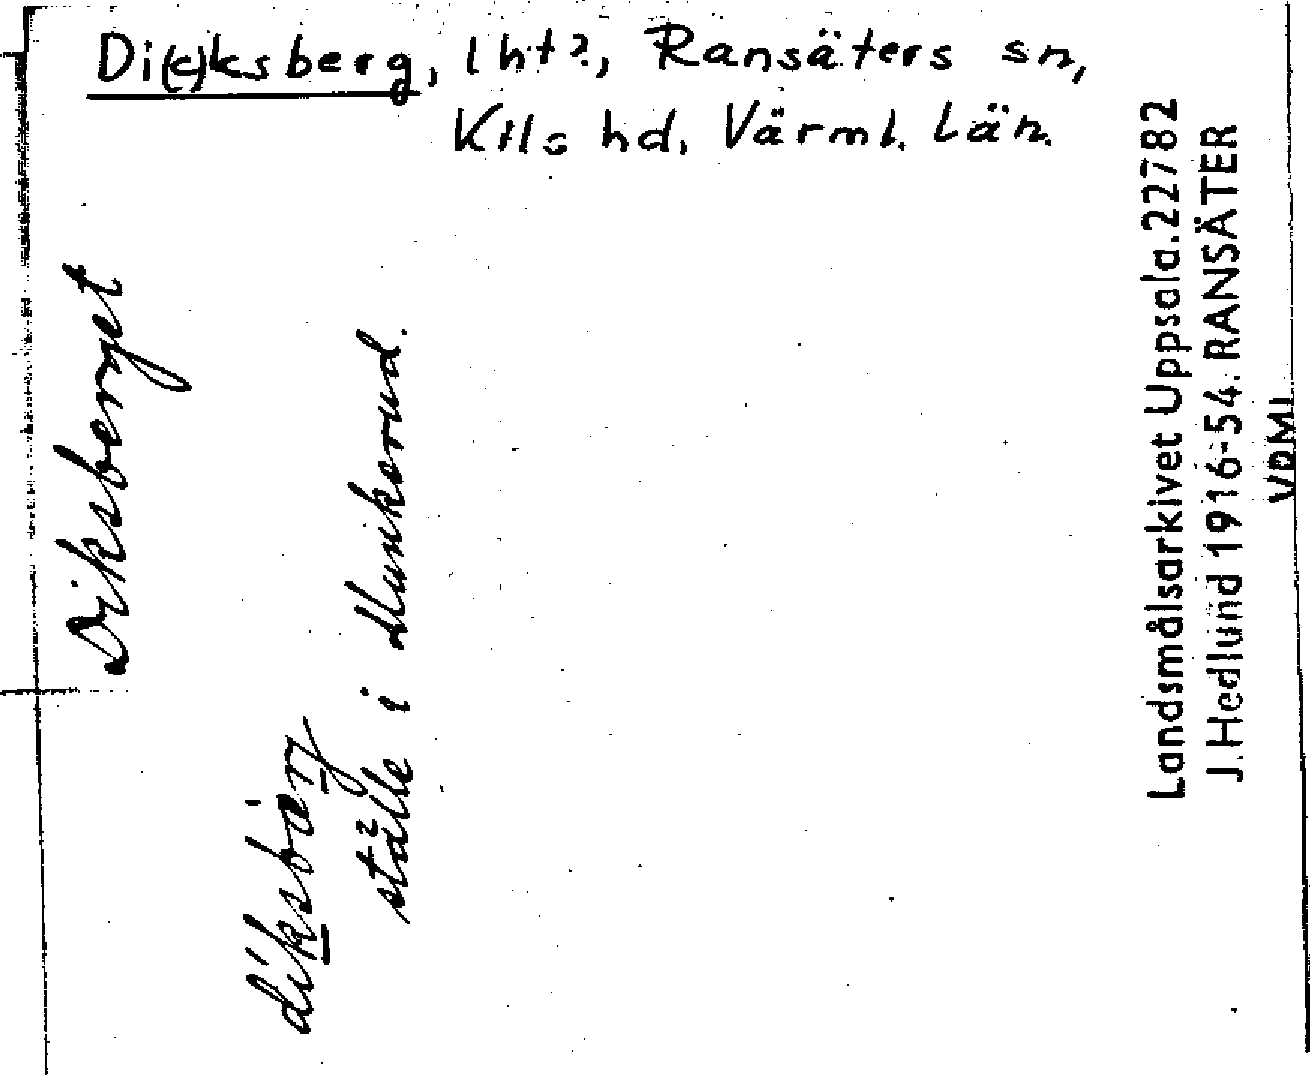 Di(c)ksberg, lht?, Ransäters sn,
Kils hd, Värml. Län.
Diksberget
ställe i Munkerud.
Landsmålsarkivet Uppsala.22782
J.Hedlund 1916-54. RANSÄTER
VRML